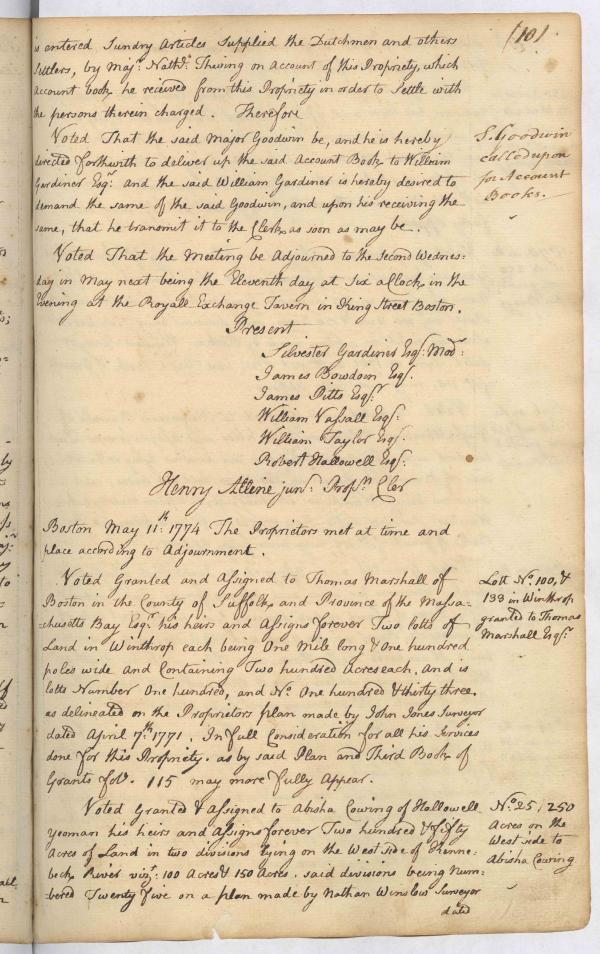 101
is entered Sundry Articles Supplied the Dutchmen and others
Settlers, by Majr. Nathl. Thwing on Account of this Propriety, which
Account book he received from this Propriety in order to Settle with
the persons therein charged. Therefore
Voted That the said Major Goodwin be, and he is hereby
directed forthwith to deliver up the said Account Book to William
Gardiner Esqr. And the said William Gardiner is hereby desired to
demand the same of the said Goodwin, and upon his receiving the
same, that he transmit it to the Clerk as soon as may be.
S. Goodwin
called upon
for Account
Books.
Voted That the Meeting be Adjourned to the Second Wednes-
day in May next being the Eleventh day at Six aClock in the
Evening at the Royall Exchange Tavern in King Street Boston.
Present
Silvester Gardiner Esqr: Modr:
James Bowdoin Esqr.
James Pitts Esqr.
William Vassall Esqr:
William Taylor Esqr.
Robert Hallowell Esqr:
Henry Alline junr: Propr. Cler
Boston May 11th: 1774 The Proprietors met at time and
place according to Adjournment.
Voted Granted and Assigned to Thomas Marshall of
Boston in the County of Suffolk and Province of the Massa-
-chusetts Bay Esqr. his heirs and Assigns forever Two lotts of
Land in Winthrop each being One Mile long & One hundred
poles wide and Containing Two hundred Acres each. And is
lotts Number One hundred, and No. One hundred & thirty three.
as delineated on the Proprietors plan made by John Jones Surveyor
dated April 7th: 1771. In full Consideration for all his Services
done for this Propriety. as by said Plan and Third Book of
Grants fol. 115 may more fully Appear.
Lott No. 100, &
133 in Winthrop
granted to Thomas
Marshall Esqr.
Voted Granted & Assigned to Abisha Cowing of Hallowell
Yeoman his heirs and Assigns forever Two hundred & fifty
Acres of Land in two divisions lying on the West side of Kenne-
beck River vizt: 100 Acres & 150 Acres. said divisions being Num-
bered Twenty five on a plan made by Nathan Winslow Surveyor
dated
No. 25, 250
Acres on the
West side to
Abisha Cowing